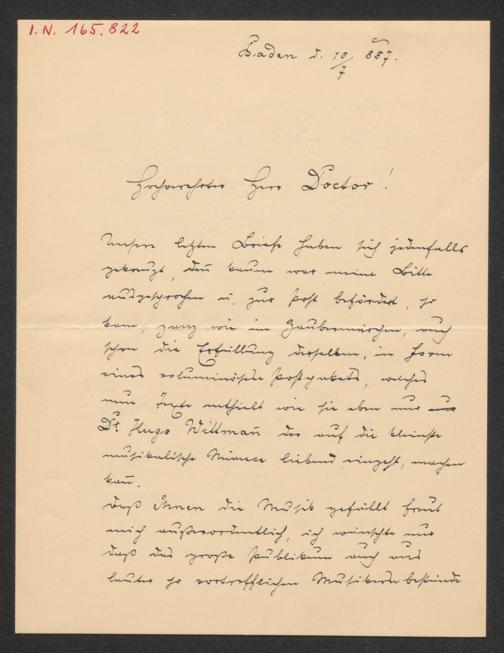 I.N. 165.822
Baden d. 10/7 887.
Hochverehrter Herr Doctor!
Unsere letzten Briefe haben sich jedenfalls
gekreuzt, den kaum war meine Bitte
ausgesprochen u. zur Post befördert, so
kam, ganz wie im Zaubermärchen, auch
schon die Erfüllung derselben, in Form
eines voluminösen Postpakets, welches
nun Texte enthielt wie sie eben nur
Dr. Hugo Wittmañ der auf die kleinste
musikalische Nüance liebend eingeht, machen
kañ.
Daß Ihnen die Musik gefällt freut
mich außerordentlich, ich wünschte nur
daß das große Publikum auch aus
lauter so vortrefflichen Musikern bestünde